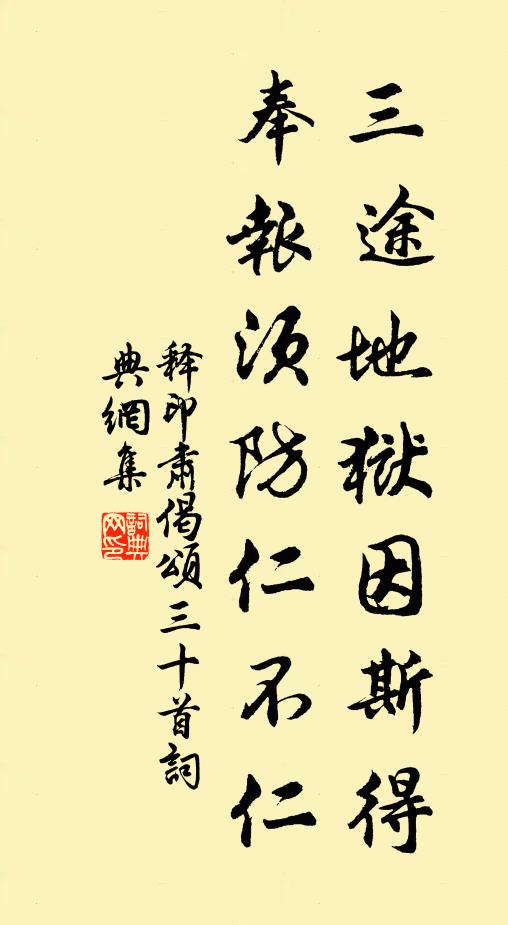 三途地獄因斯得
奉報須防仁不仁
释印肅偈頌三十首詞
典網集
詞典网印